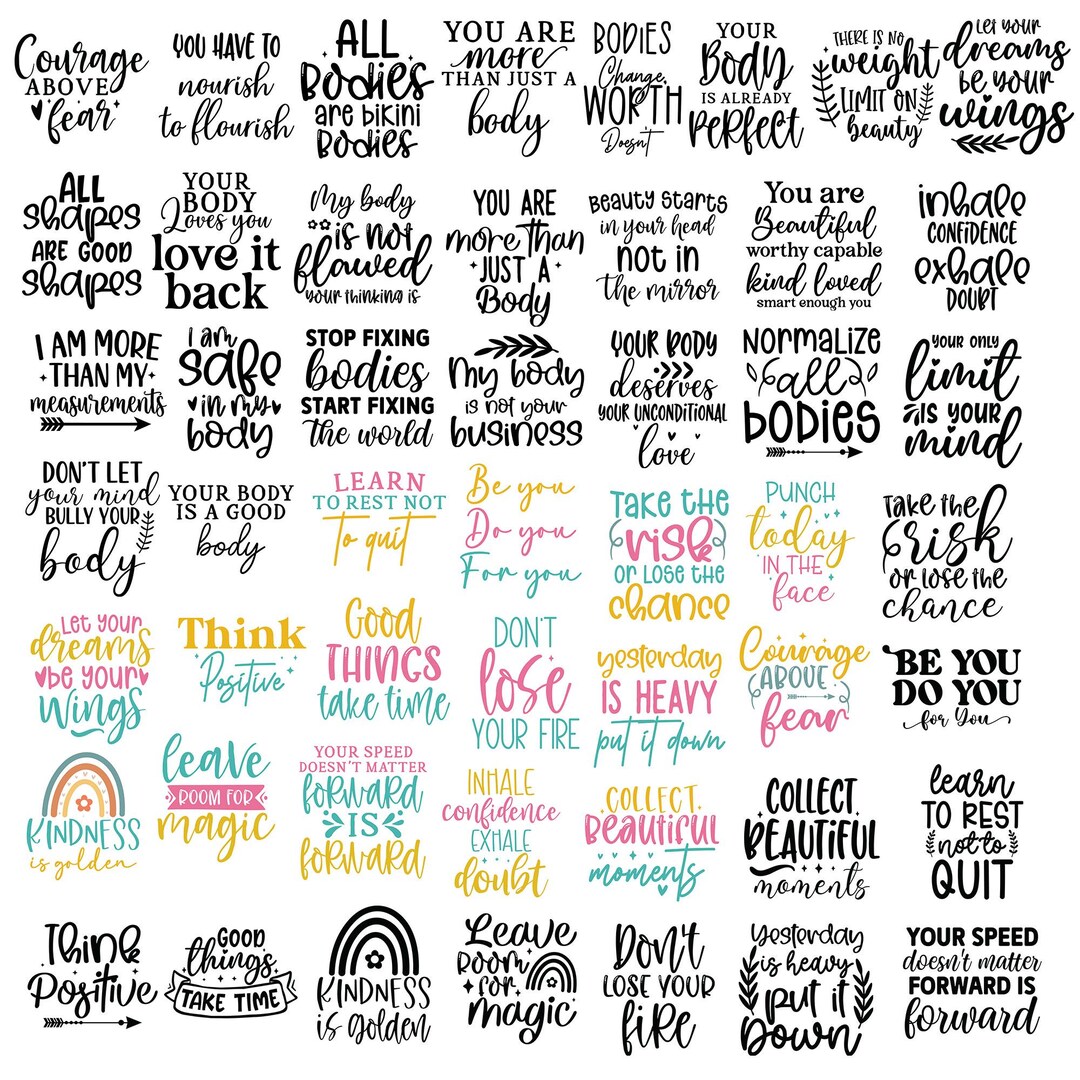 Courage
ABOVE
fear
YOU HAVE TO
nourish
to flourish
ALL
Bodies
are bikini
Bodies
YOU ARE
more
THAN JUST A
body
BODIES
Change,
WORTH
Doesn't
YOUR
Body
IS ALREADY
PERFECT
THERE IS NO
weight
LIMIT ON
beauty
Let your
dreams
be your
wings
ALL
shapes
ARE GOOD
shapes
YOUR
BODY
Loves you
love it
back
My body
is not
flawed
your thinking is
YOU ARE
more than
JUST A
Body
Beauty starts
in your head
not in
the mirror
You are
Beautiful
worthy capable
kind loved
smart enough you
inhale
CONFIDENCE
exhale
DOUBT
I AM MORE
THAN MY
measurements
I am
safe
in my
body
STOP FIXING
bodies
START FIXING
the world
My body
is not your
business
YOUR BODY
deserves
YOUR UNCONDITIONAL
love
NORMALIZE
all
bodies
YOUR ONLY
limit
IS YOUR
mind
DON'T LET
your mind
BULLY YOUR
body
YOUR BODY
IS A GOOD
body
LEARN
TO REST NOT
To quit
Be you
Do you
For you
Take the
risk
or lose the
chance
PUNCH
today
IN THE
face
Take the
risk
or lose the
chance
Let your
dreams
be your
Wings
Think
Positive
Good
THINGS
take time
DON'T
lose
YOUR FIRE
yesterday
IS HEAVY
put it down
Courage
ABOVE
fear
BE YOU
DO YOU
for You
KINDNESS
is golden
leave
ROOM FOR
magic
YOUR SPEED
DOESN'T MATTER
forward
IS
forward
INHALE
confidence
EXHALE
doubt
COLLECT
Beautiful
moments
COLLECT
BEAUTIFUL
moments
learn
TO REST
not to
QUIT
Think
Positive
GOOD
things
TAKE TIME
KINDNESS
is golden
Leave
Room
for
magic
Don't
LOSE YOUR
fire
Yesterday
is heavy
put it
Down
YOUR SPEED
doesn't matter
FORWARD IS
forward